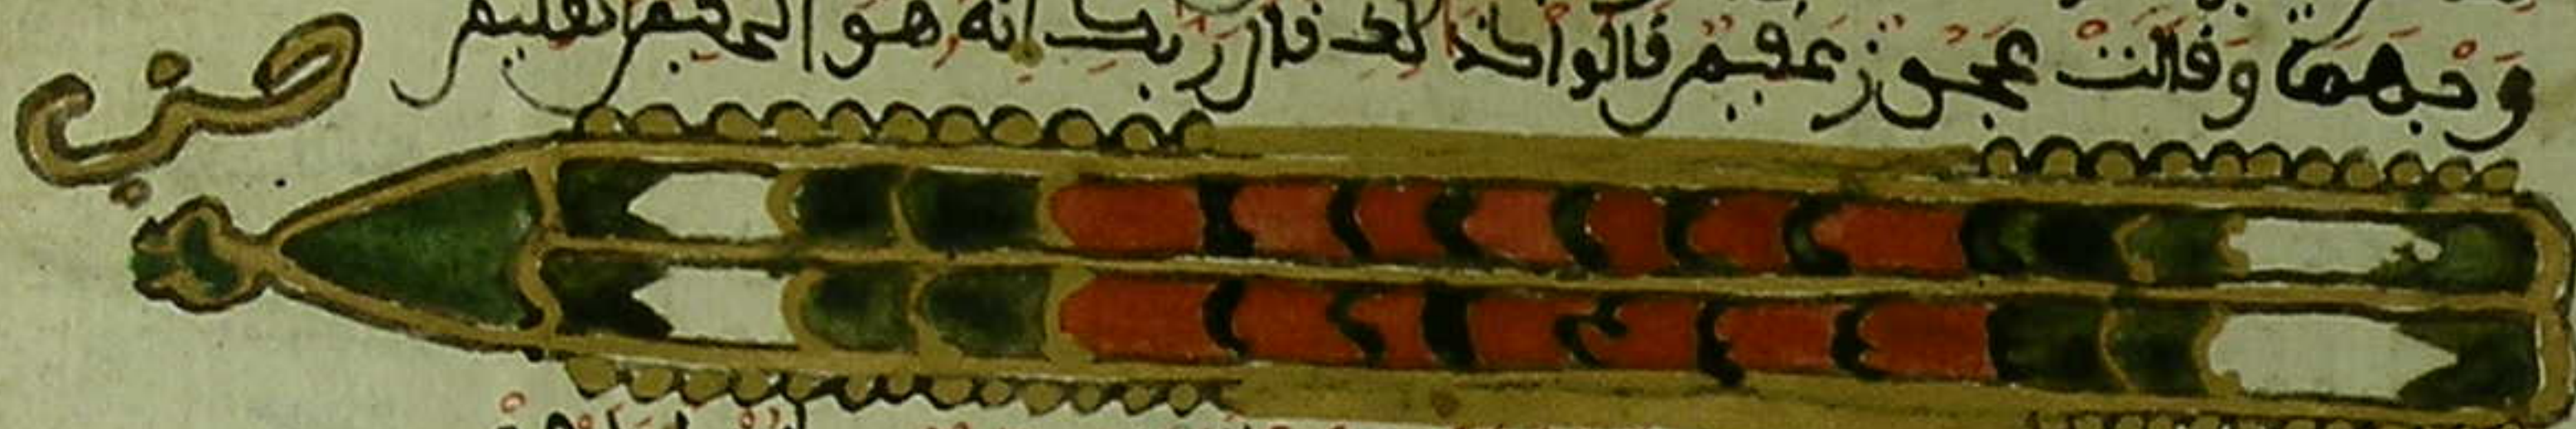 وَجْهَهَا وَقَالَتْ عَجُوزٌ عَقِيمٌ قَالُوا كَذَلِكِ قَالَ رَبُّكِ إِنَّهُ هُوَ الْحَكِيمُ الْعَلِيمُ
حزب